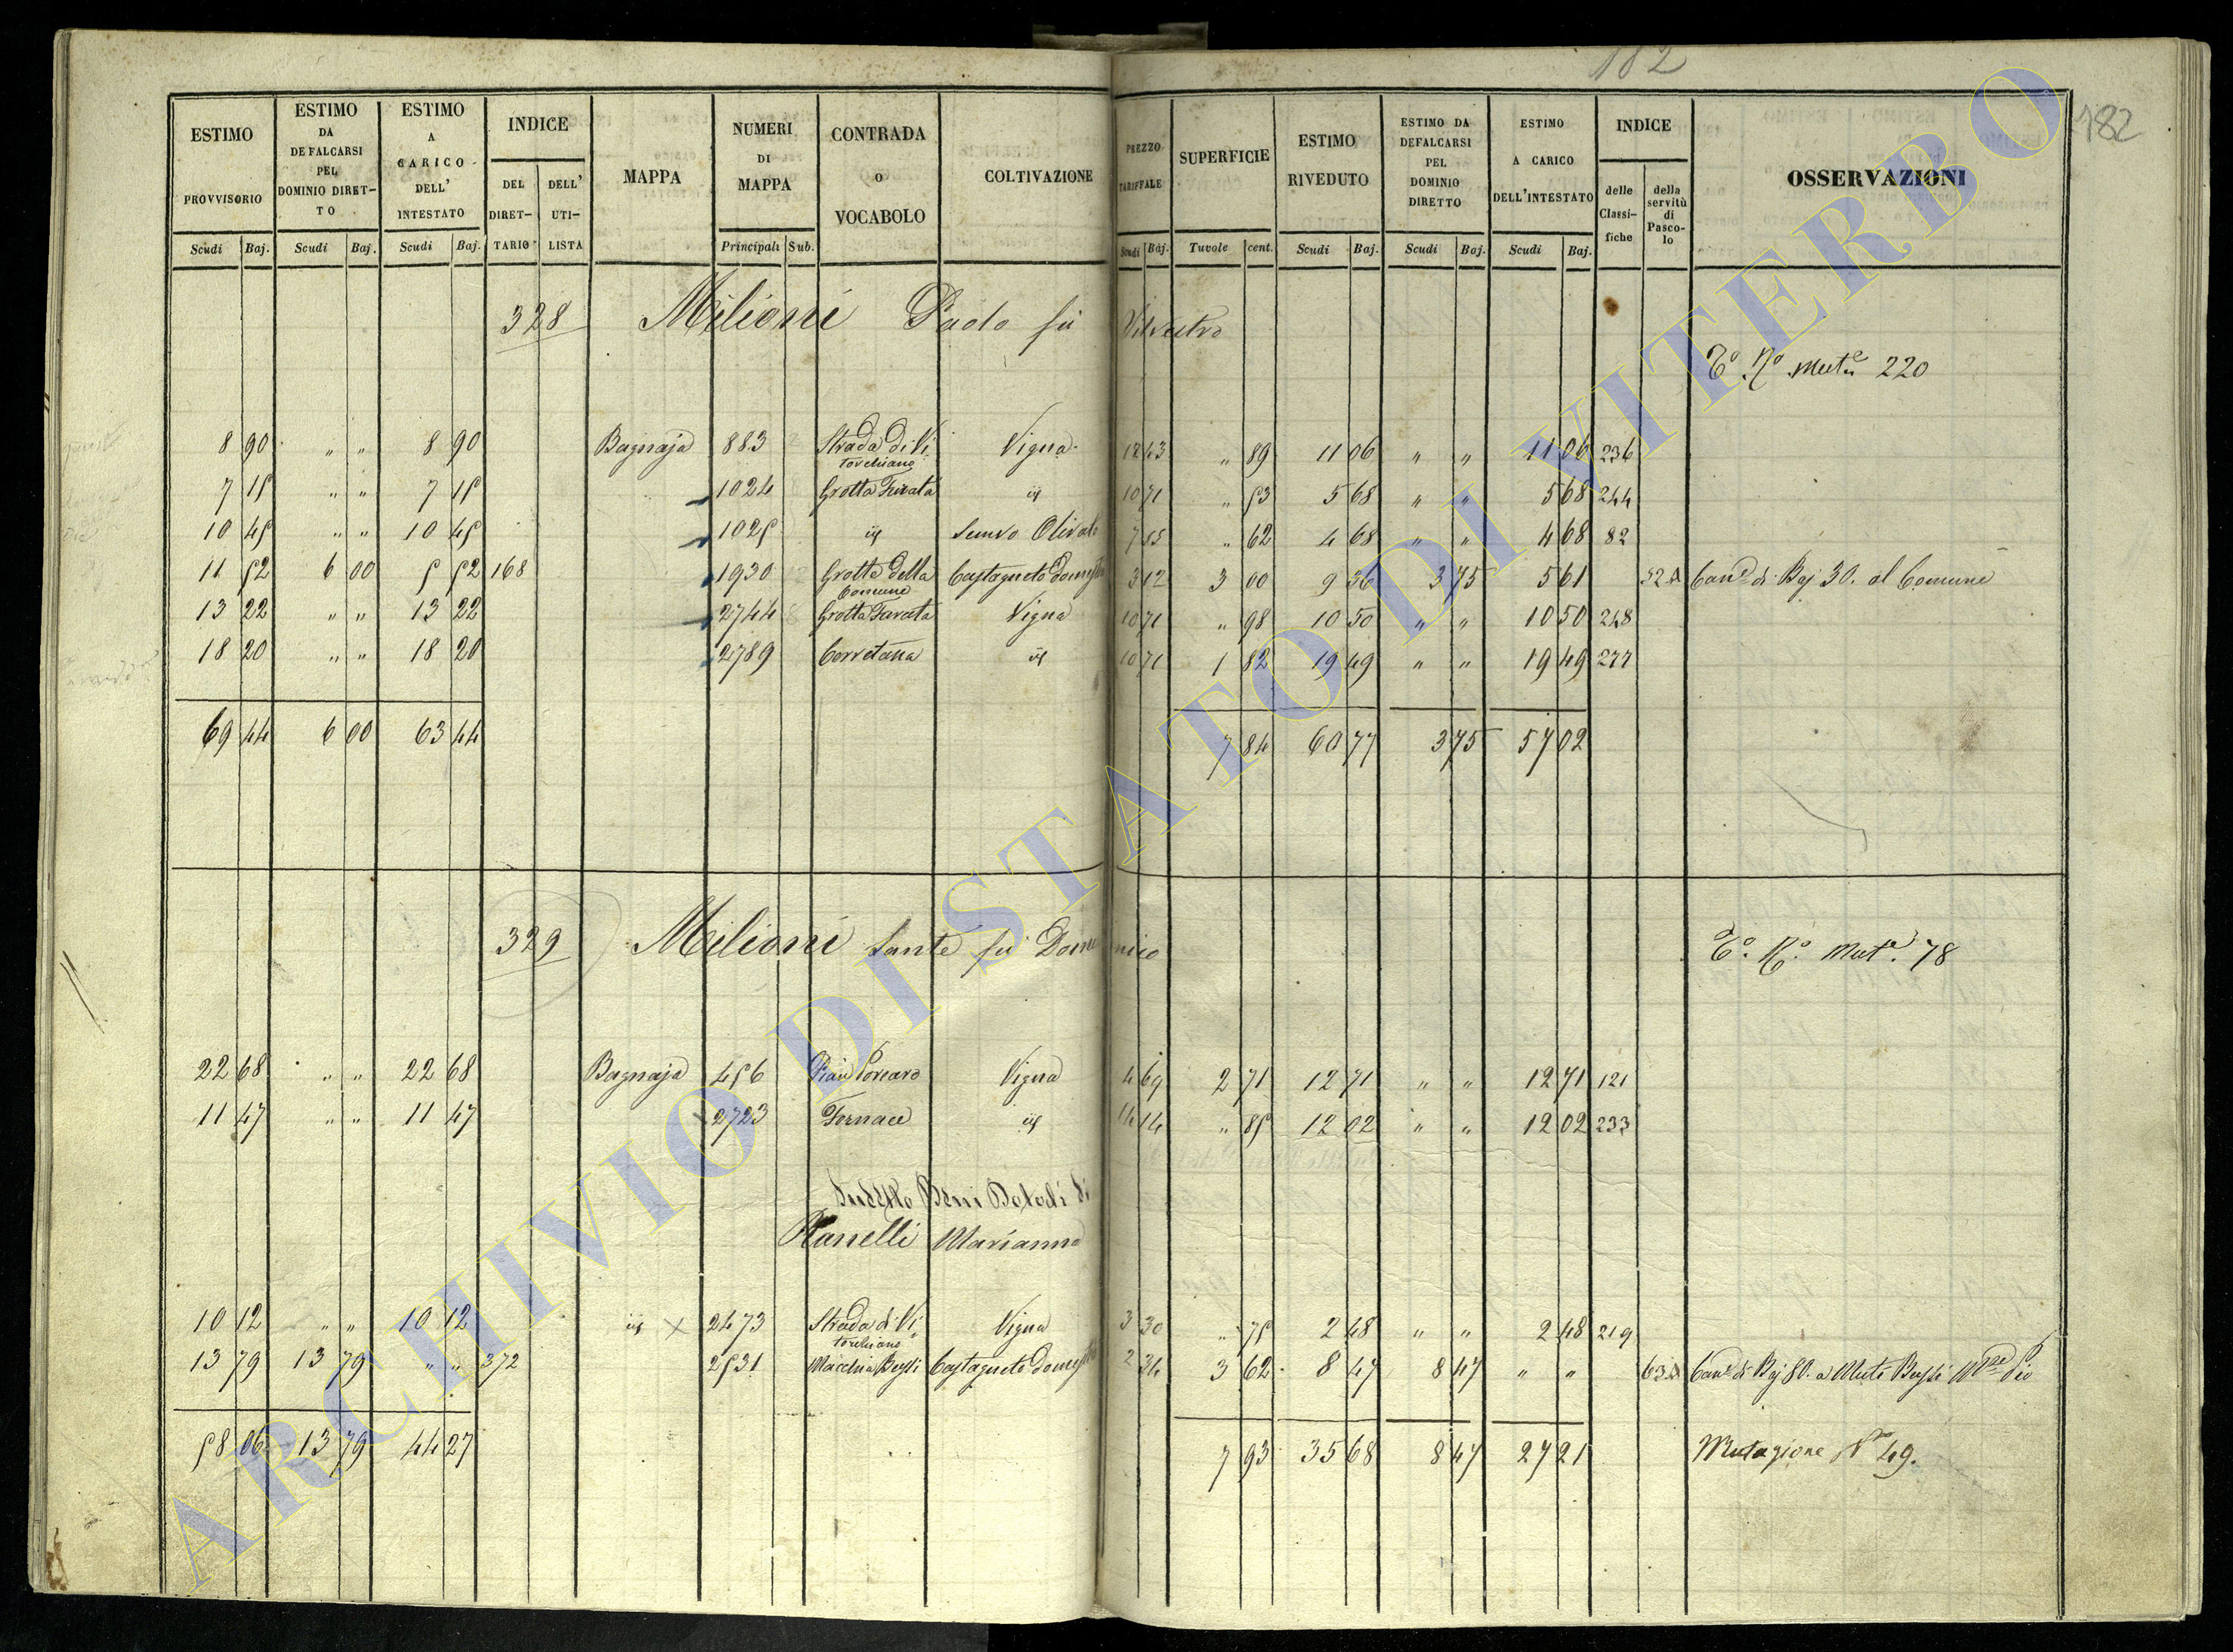 182
182
ESTIMO PROVVISORIO Scudi Baj.
ESTIMO DA DEFALCARSI PEL DOMINIO DIRET-TO Scudi Baj.
ESTIMO A CARICO DELL' INTESTATO Scudi Baj.
INDICE DEL DIRET-TARIO DELL' UTI-LISTA
MAPPA
NUMERI DI MAPPA Principali Sub.
CONTRADA o VOCABOLO
COLTIVAZIONE
PREZZO TARIFFALE Scudi Baj.
SUPERFICIE Tavole cent.
ESTIMO RIVEDUTO Scudi Baj.
ESTIMO DA DEFALCARSI PEL DOMINIO DIRETTO Scudi Baj.
ESTIMO A CARICO DELL'INTESTATO Scudi Baj.
INDICE delle Classi-fiche della servitù di Pasco-lo
OSSERVAZIONI
328 Milioni Paolo fù Silvestro
Mut.e 220
8 90 " " 8 90 Bagnaja 883 Strada di Vi Vigna 12 43 " 89 11 06 " " 11 06 236
torchiano
7 15 " " 7 15 1024 Grotta Gurata id 10 71 " 53 5 68 " " 5 68 244
10 45 " " 10 45 1025 id Semvo Olivato 7 55 " 62 4 68 " " 4 68 82
11 52 6 00 5 52 168 1930 Grotte della Castagneto Domestico 3 12 3 00 9 36 3 75 5 61 52 A Can.e di Baj 30. al Comune
Comune
13 22 " " 13 22 2744 Grotta Gurata Vigna 10 71 " 98 10 50 " " 10 50 248
18 20 " " 18 20 2789 Corretana id 10 71 1 82 19 49 " " 19 49 277
69 44 6 00 63 44 7 84 60 77 3 75 57 02
329 Milioni Sante fù Domenico
Mut.e 78
22 68 " " 22 68 Bagnaja 456 Pian Porcaro Vigna 4 69 2 71 12 71 " " 12 71 121
11 47 " " 11 47 2723 Fornace id 14 14 " 85 12 02 " " 12 02 233
Sudetto Beni Dotali di
Ranelli Marianna
10 12 " " 10 12 id × 2473 Strada di Vi Vigna 3 30 " 75 2 48 " " 2 48 219
torchiano
13 79 13 79 " " 372 2531 Macchia Bussi Castagneto Domestico 2 34 3 62 8 47 8 47 " " 63 A Can.e di Baj 80. a Muti Bussi Pio
58 06 13 79 44 27 7 93 35 68 8 47 27 21 Mutazione N 49.
ARCHIVIO DI STATO DI VITERBO